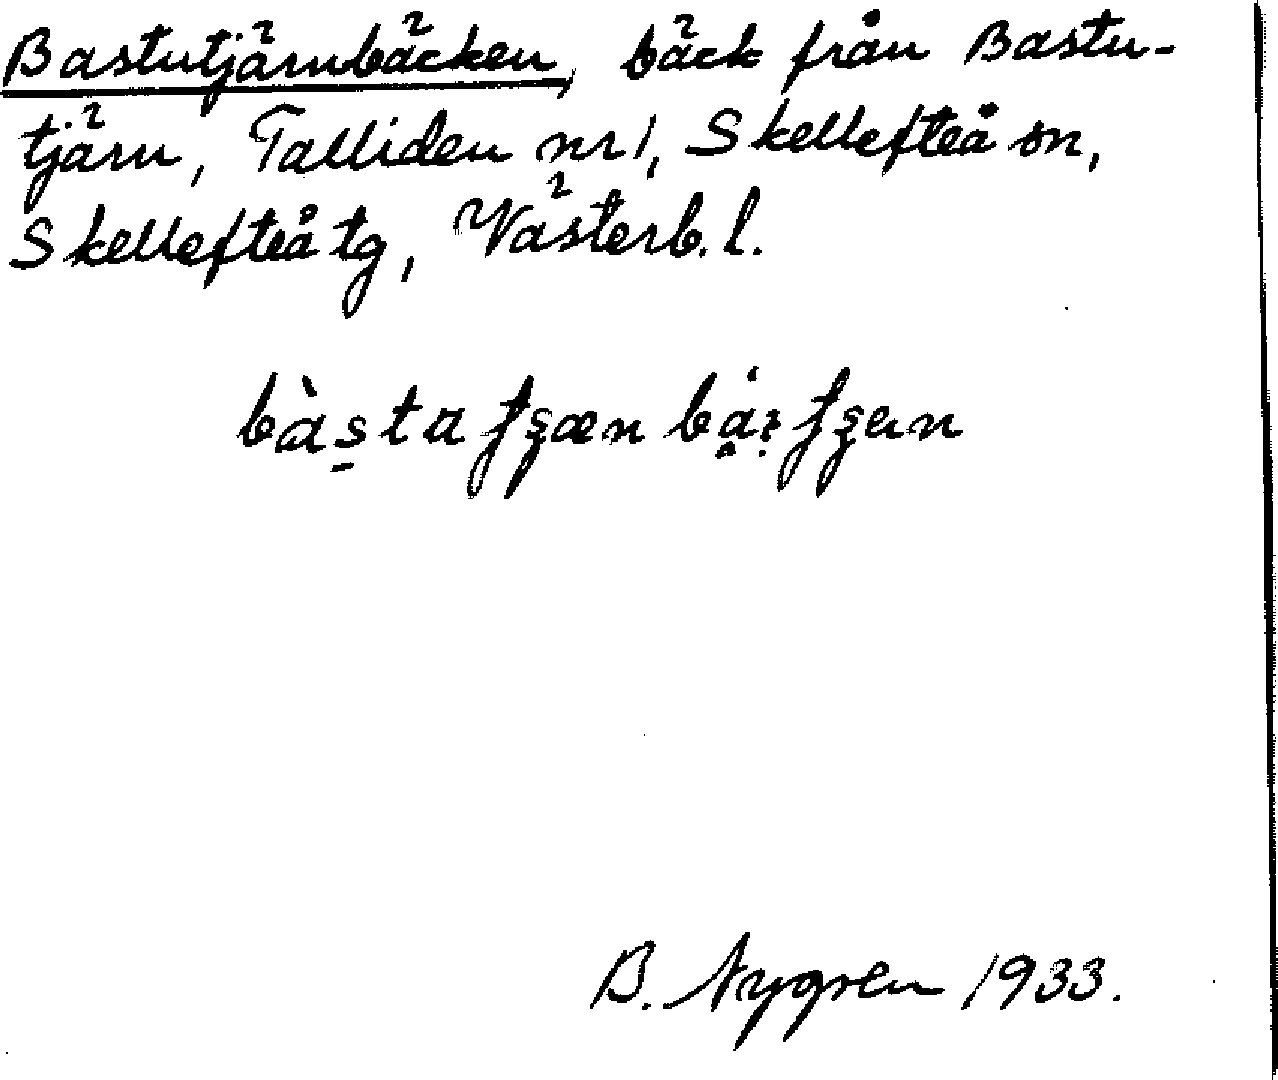 Bastutjärnbäcken, bäck från Bastu-
tjärn, Talliden nr 1, Skellefteå sn,
Skellefteå tg, Västerb. l.
B. Nygren 1933.